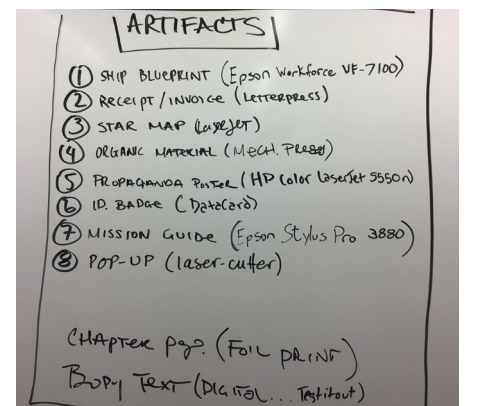 ARTIFACTS
① SHIP BLUEPRINT (Epson Workforce VF-7100)
② RECEIPT / INVOICE (LETTERPRESS)
③ STAR MAP (LaserJET)
④ ORGANIC MATERIAL (MECH. PRESS)
⑤ PROPAGANDA POSTER (HP Color LaserJet 5550n)
⑥ I.D. BADGE (DATACARD)
⑦ MISSION GUIDE (Epson Stylus Pro 3880)
⑧ POP-UP (laser-cutter)
CHAPTER pgs. (FOIL PRINT)
BODY TEXT (DIGITAL... Test it out)